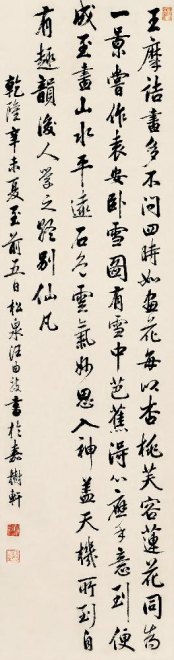 王摩詰畫多不問四時如畫花每以杏桃芙容蓮花同為
一景嘗作袁安臥雪圖有雪中芭蕉得心應手意到便
成至畫山水平遠石色雲氣妙思入神蓋天機所到自
有趣韻後人學之終別仙凡
乾隆辛未夏至前五日松泉汪由敦書於嘉樹軒